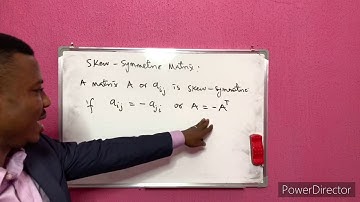 Skew-Symmetric Matrix:
A matrix A or aij is skew-symmetric
if aij = -aji or A = -A^T
PowerDirector